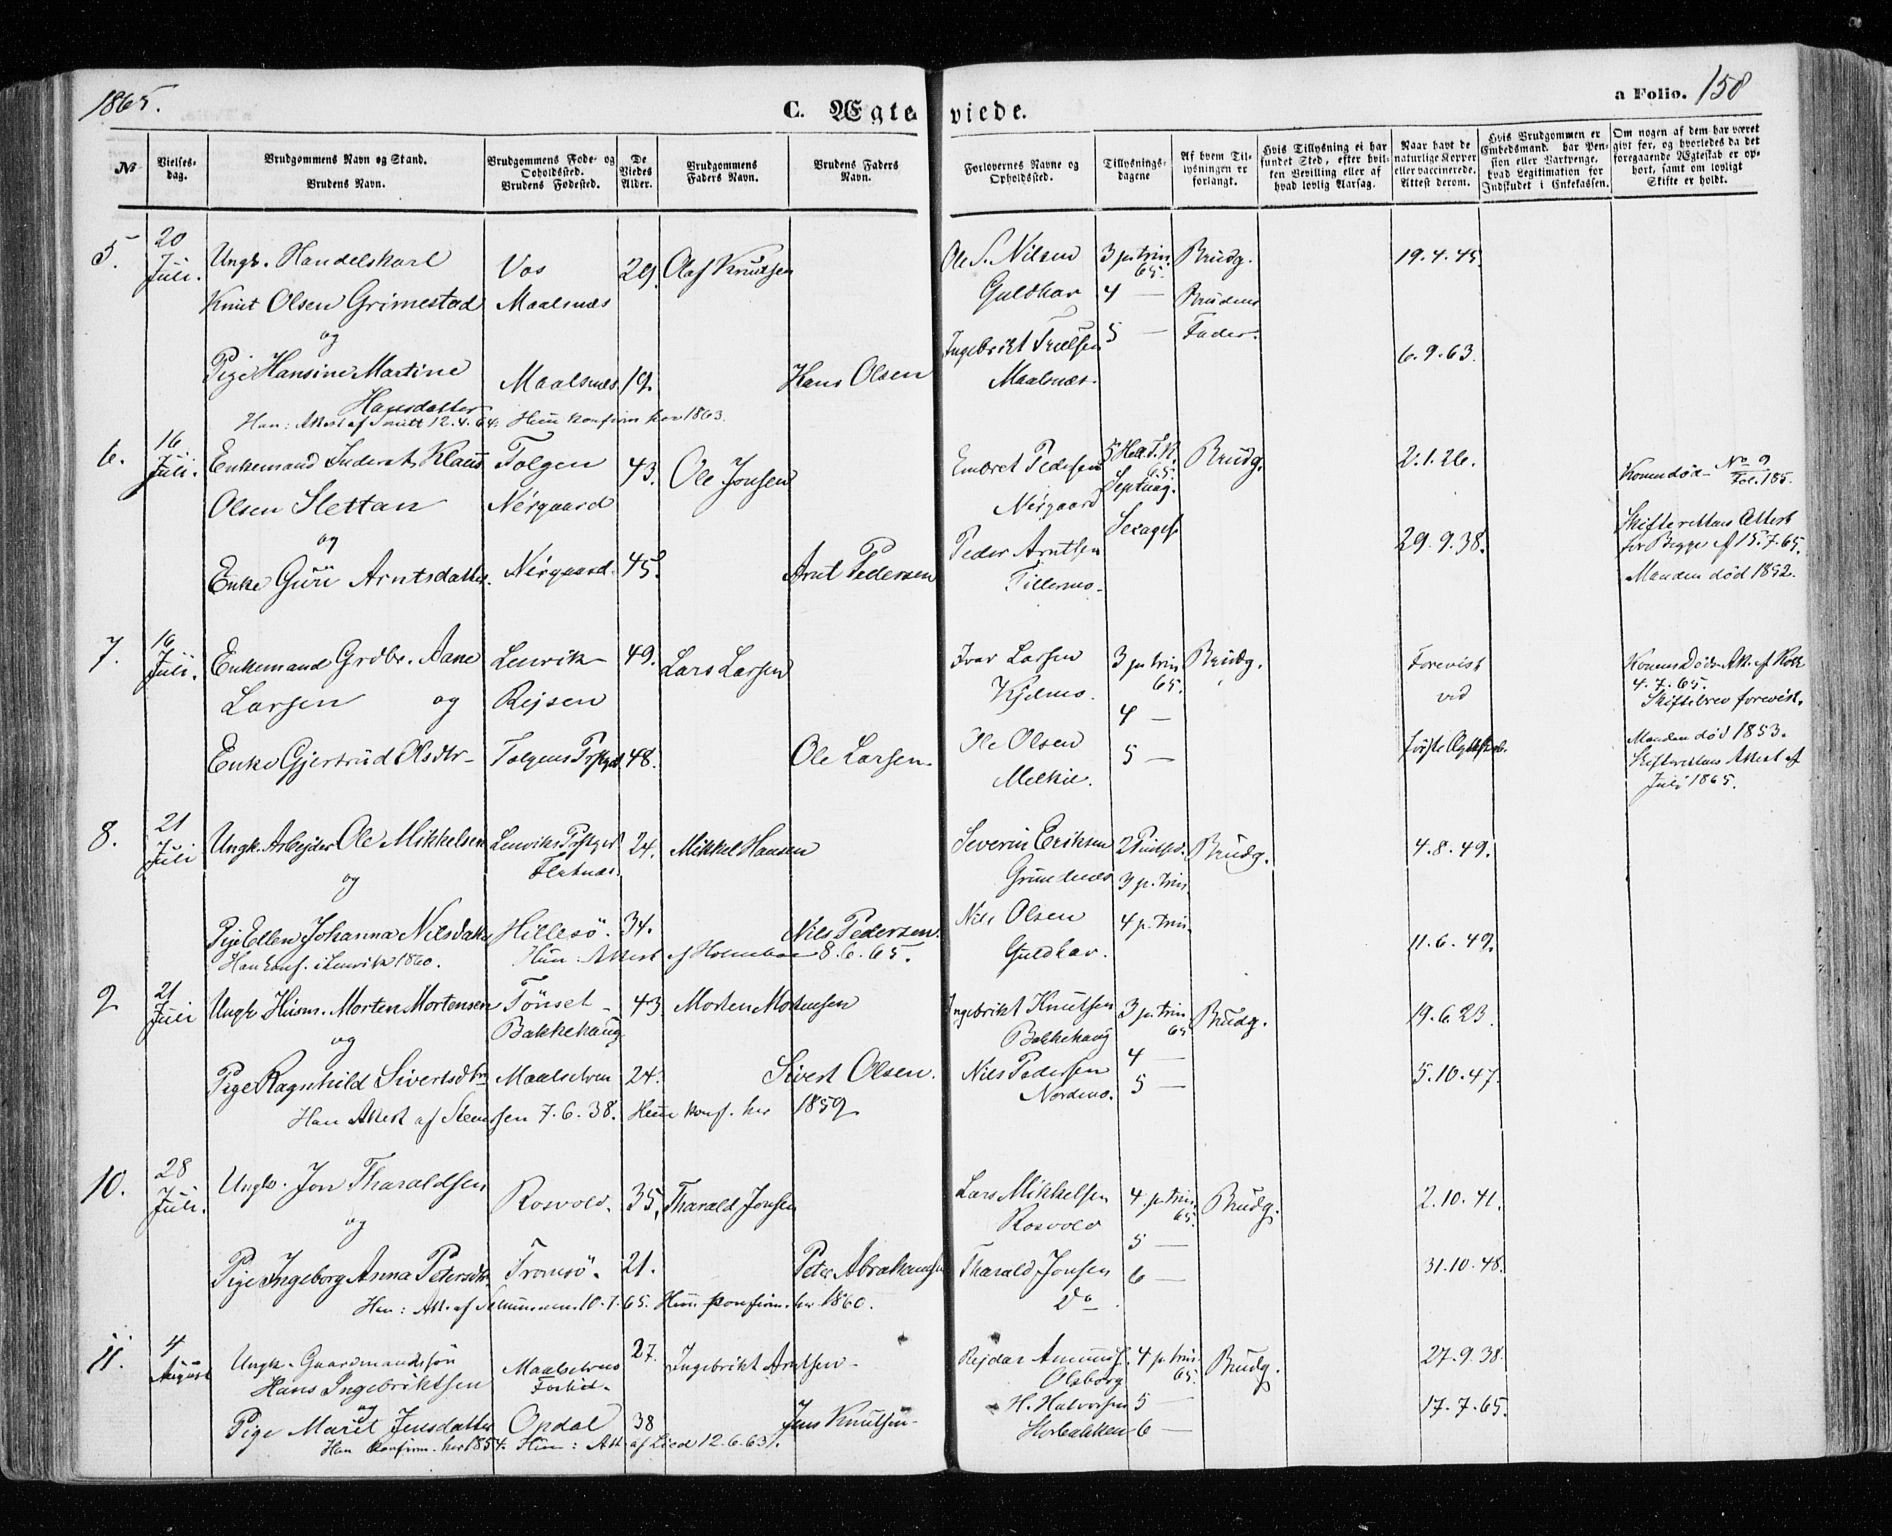 1865.
C. Ægteviede.
a Folio. 158
No
Vielses-dag.
Brudgommens Navn og Stand.
Brudens Navn.
Brudgommens Føde- og Opholdssted.
Brudens Fødested.
De Viedes Alder.
Brudgommens Faders Navn.
Brudens Faders Navn.
Forlovernes Navne og Opholdssted.
Tillysnings-dagene
Af hvem Til-lysningen er forlangt.
Hvis Tillysning ei har fundet Sted, efter hvil-ken Bevilling eller af hvad lovlig Aarsag.
Naar havt de naturlige Kopper eller vaccinerede. Attest derom.
Hvis Brudgommen er Embedsmand, har Pen-sion eller Vartpenge, hvad Legitimation for Indskudet i Enkekassen.
Om nogen af dem har været givt før, og hvorledes da det foregaaende Ægteskab er op-hørt, samt om lovligt Skifte er holdt.
5. 20 Juli. Ungk. Handelskarl Vos 29. Olaf Knutsen Ole S. Nilsen 3 p. trin. 65. Brudg. 19.4.45.
Knut Olsen Grimestad Maalsnæs Guldhav 4 — Brudens
og Ingebrikt Troelsen 5 — Fader.
Pige Hansine Martine Maalsnæs 19. Hans Olsen Maalsnæs. 6.9.63.
Hansdatter
Han: Attest af Smitt 12.4.64. Hun konfirm her 1863.
6. 16 Juli. Enkemand Inderst Klaus Tolgen 43. Ole Jonsen Embret Pedersen 65. Brudg. 2.1.26. Konen død No 9 Fol. 185.
Olsen Slettan Nergaard Nergaard Septuag.
og Sexages. Skifterettens Attest
Enke Guri Arntsdatter. Nergaard. 45. Arnt Pedersen Peder Arntsen 29.9.38. for Begge af 15.7.65.
Fillermo. Manden død 1852.
7. 16 Juli. Enkemand Grdbr. Aane Lenvik 49. Lars Larsen Ivar Larsen 3 p. trin 65. Brudg. Forevist Konens Døds Att. af
Larsen og Rejsen Kjelmo. 4 — ved 4.7.65. Skiftebrev forevist.
Enke Gjertrud Olsdtr Tolgens Prstgd. 48. Ole Larsen. Ole Olsen 5 — første Ægteskab. Manden død 1853.
Melkie. Skifterettens Attest af
Juli 1865.
8. 21 Juli Ungk. Arbejder Ole Mikkelsen Lenviks Prstgd 24. Mikkel Hansen Severin Eriksen 2 Pintsed. Brudg. 4.8.49.
og Flatnæs. Grundnæs 3 p. trin.
Pige Ellen Johanna Nilsdatter Hillesö. 34. Nils Pedersen. Nils Olsen 4 p. trin. 11.6.49.
Han konf. i Lenvik 1860. Hun: Attest af Holmboe 8.6.65. Guldhav.
9 21 Juli Ungk Husm. Morten Mortensen Tönset 43 Morten Mortensen Ingebrikt Knutsen 3 p. trin 65 Brudg. 19.6.23.
og Bakkehaug Bakkehaug 4 —
Pige Ragnhild Sivertsdtr Maalselven 24. Sivert Olsen. Nils Pedersen 5 — 5.10.47.
Han Attest af Steenssen 7.6.38. Hun konf. her 1859 Nordmo.
10. 28 Juli. Ungk. Jon Tharaldsen Rosvold. 35. Tharald Jonsen Lars Mikkelsen 4 p. trin. 65. Brudg. 2.10.41.
og Rosvold 5 —
Pige Ingeborg Anna Petersdtr. Tromsö. 21. Peter Abrahamsen Tharald Jonsen 6 — 31.10.48.
Han: Att. af 10.7.65. Hun konfirm. her 1860. Do.
11. 4 August Ungk. Gaardmandssön Maalselvens 27. Ingebrikt Arntsen Rejdar Amunds. 4 p. trin. 65. Brudg. 27.9.38.
Hans Ingebriktsen Olsborg
og H. Halvorsen 5 —
Pige Marit Jensdatter Opdal 38 Jens Knutsen 6 — 17.7.65.
Han konfirm. her 1854. Hun: Att. af Lied 12.6.63.